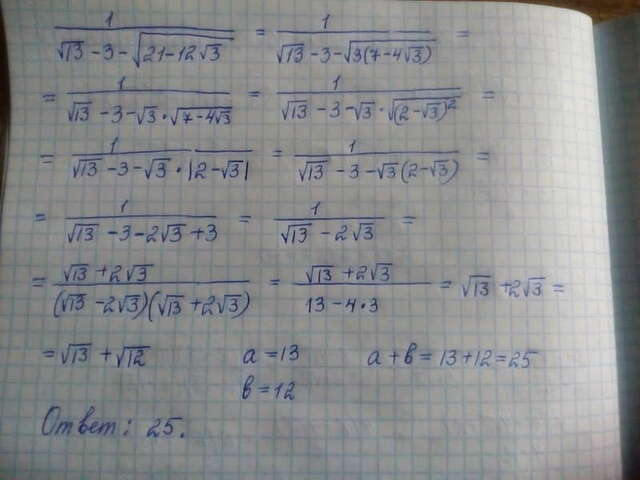 1/(√13 − 3 − √(21 − 12√3)) = 1/(√13 − 3 − √(3(7 − 4√3))) =
= 1/(√13 − 3 − √3 · √(7 − 4√3)) = 1/(√13 − 3 − √3 · √((2 − √3)²)) =
= 1/(√13 − 3 − √3 · |2 − √3|) = 1/(√13 − 3 − √3(2 − √3)) =
= 1/(√13 − 3 − 2√3 + 3) = 1/(√13 − 2√3) =
= (√13 + 2√3)/((√13 − 2√3)(√13 + 2√3)) = (√13 + 2√3)/(13 − 4·3) = √13 + 2√3 =
= √13 + √12 a = 13 a + b = 13 + 12 = 25
b = 12
Ответ: 25.